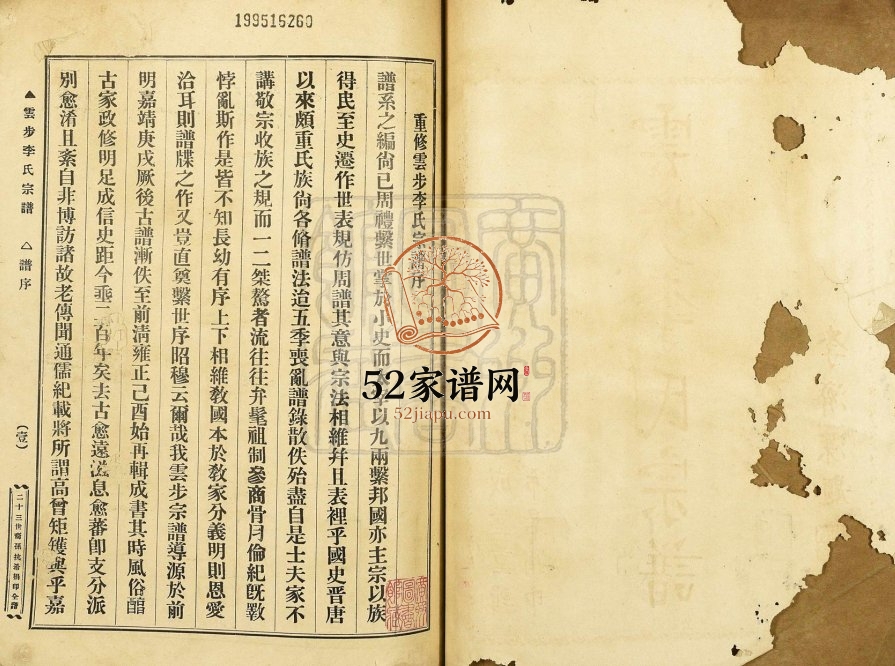 199516260
重修雲步李氏宗譜序
譜系之編尙已周禮繫世掌於小史而以九兩繫邦國亦主宗以族
得民至史遷作世表規仿周譜其意與宗法相維幷且表裡乎國史晉唐
以來頗重氏族尙各脩譜法迨五季喪亂譜錄散佚殆盡自是士夫家不
講敬宗收族之規而一二桀驁者流往往弁髦祖制參商骨月倫紀旣斁
悖亂斯作是皆不知長幼有序上下相維敎國本於敎家分義明則恩愛
洽耳則譜牒之作又豈直奠繫世序昭穆云爾哉我雲步宗譜導源於前
明嘉靖庚戌厥後古譜漸佚至前淸雍正己酉始再輯成書其時風俗醕
古家政修明足成信史距今垂二百年矣去古愈遠滋息愈蕃卽支分派
別愈淆且紊自非博訪諸故老傳聞通儒紀載將所謂高曾矩矱與乎嘉
▲雲步李氏宗譜 △譜序 (壹)
二十三世裔孫抗希捐印全譜
52家谱网
52jiapu.com